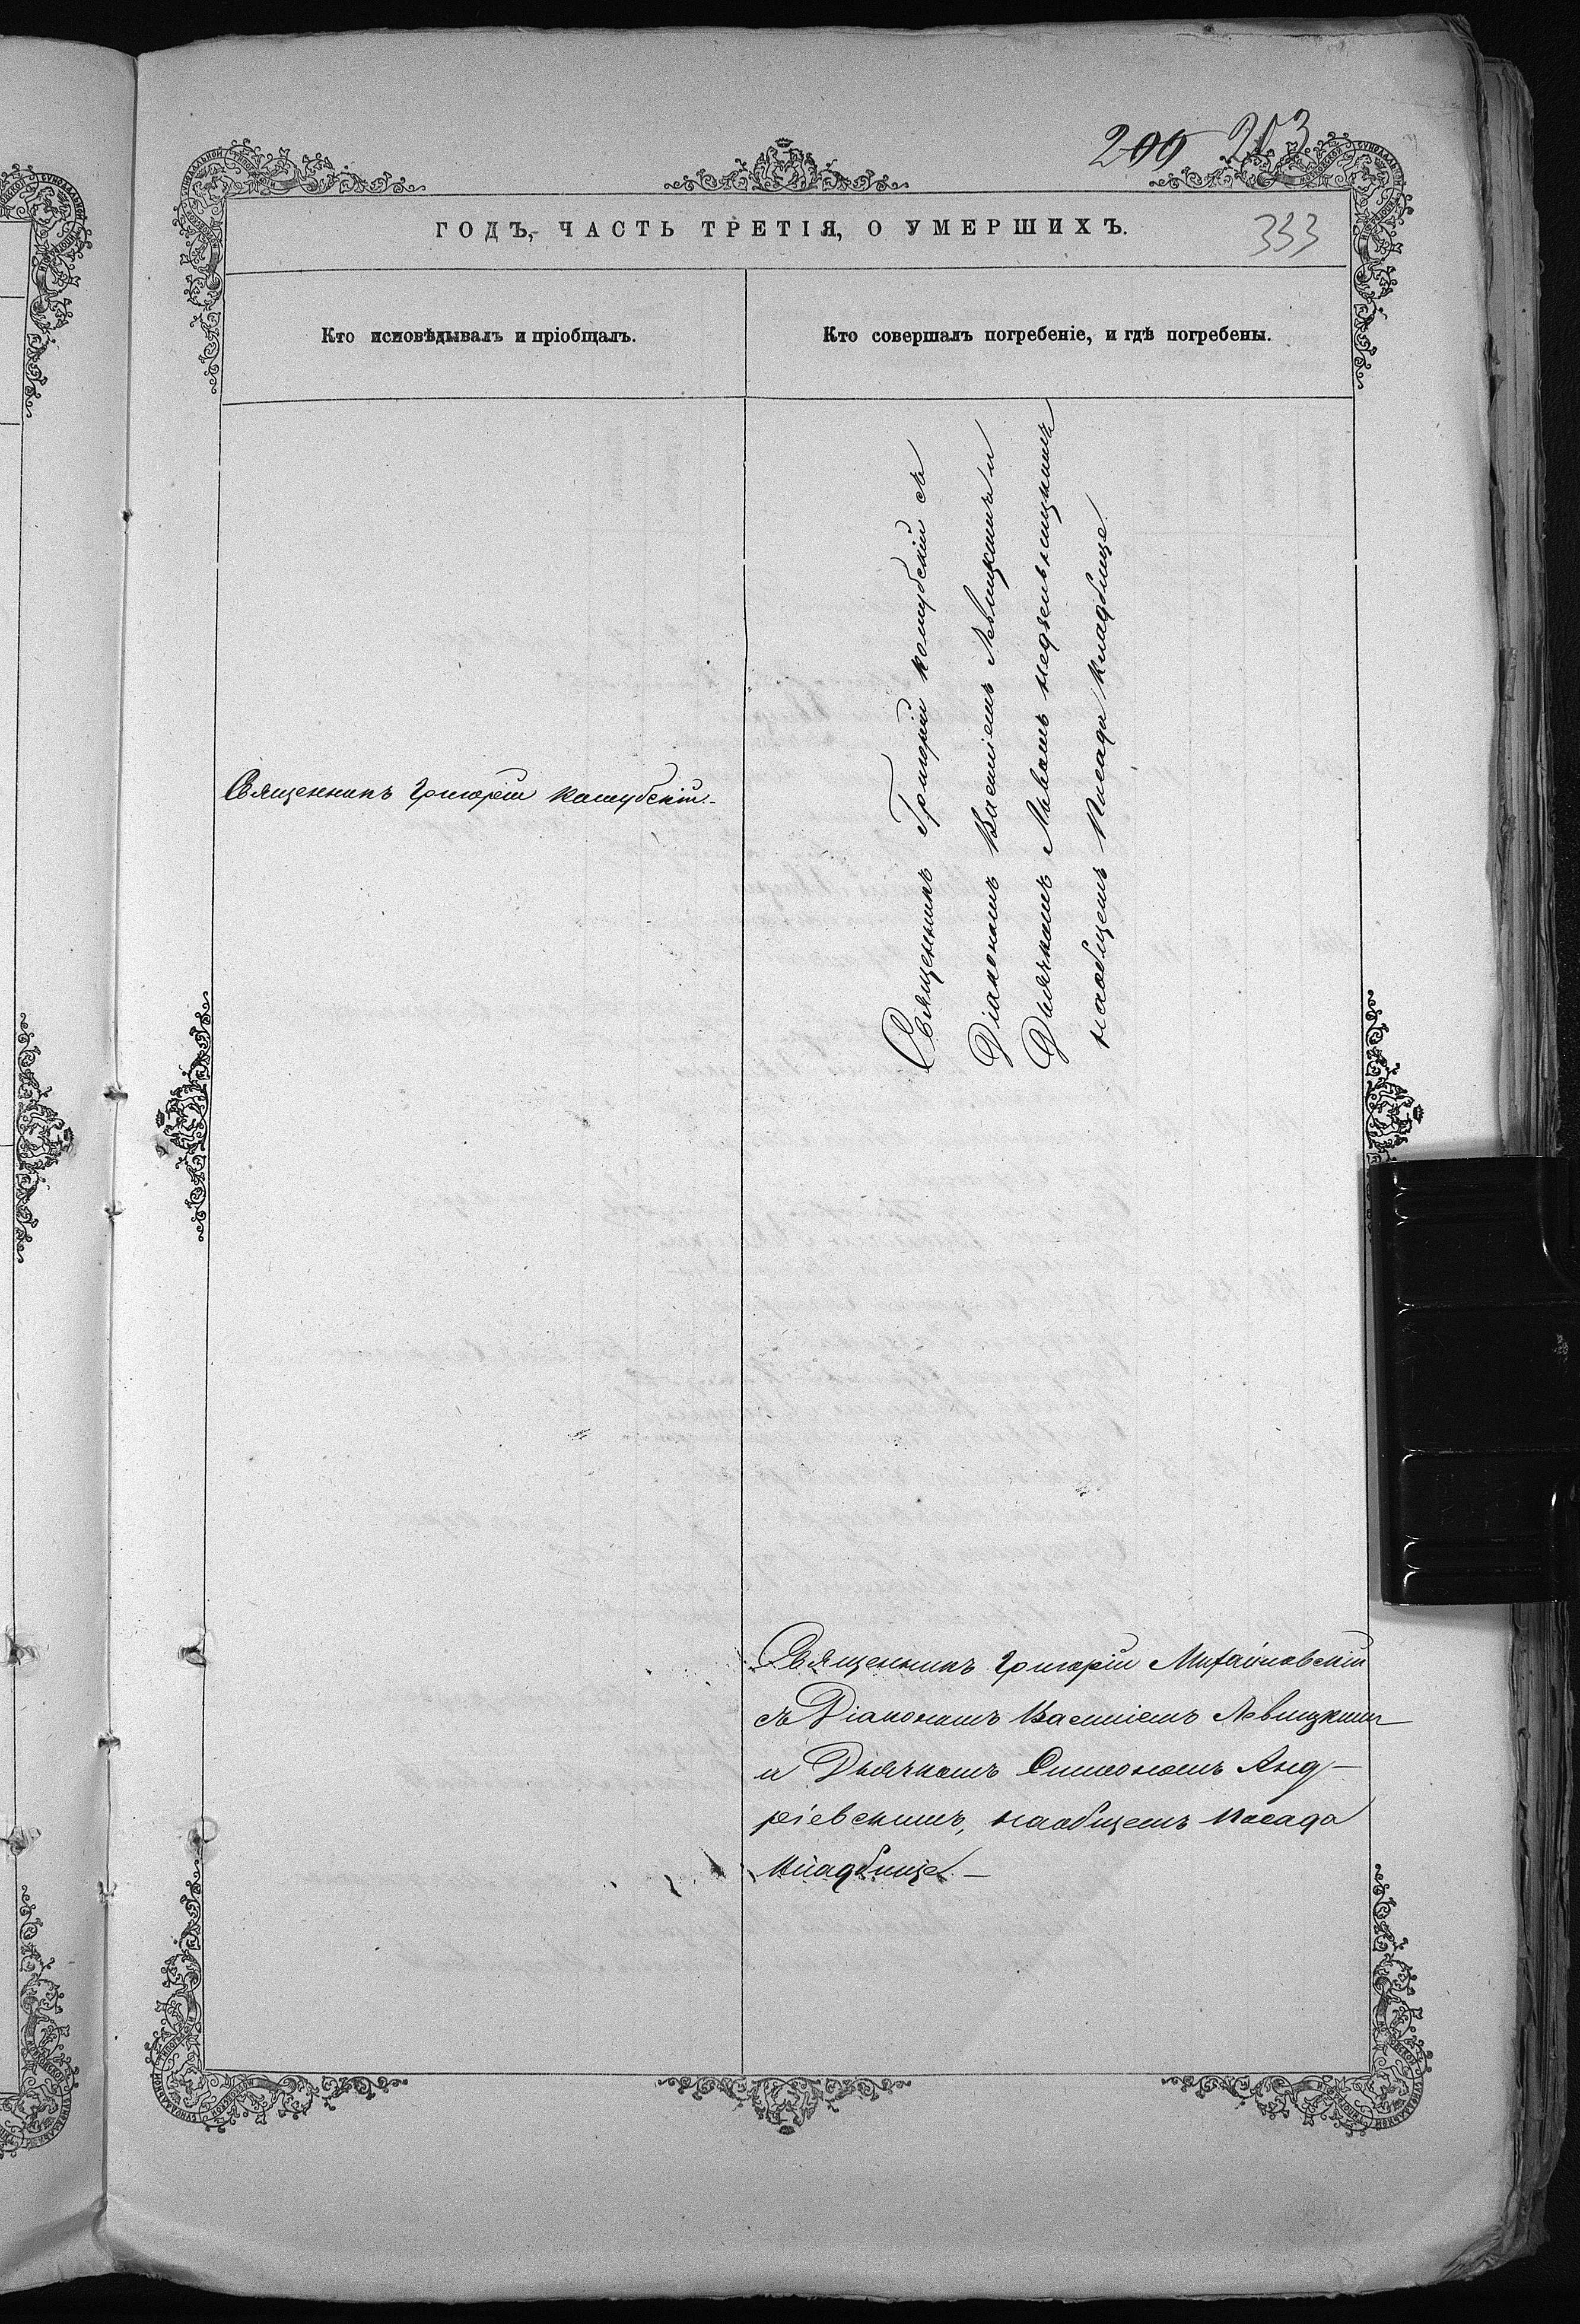 200 203
ГОДЪ, ЧАСТЬ ТРЕТІЯ, О УМЕРШИХЪ.
333
Кто исповѣдывалъ и пріобщалъ.
Кто совершалъ погребеніе, и гдѣ погребены.
Священникъ Григорій Кашубскій
Священникъ Григорій Кашубскій съ
Діакономъ Василіемъ Левицкимъ и
Дьячкомъ Львомъ Недзельницкимъ
на общемъ Посада Кладбище
Священникъ Григорій Михайловскій
съ Діакономъ Василіемъ Левицкимъ
и Дьячкомъ Симономъ Анд-
ріевскимъ, на общемъ Посада
Кладбище. —